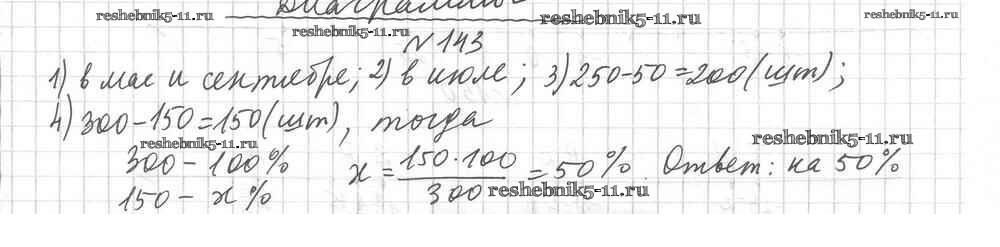 Диаграммы
reshebnik5-11.ru reshebnik5-11.ru reshebnik5-11.ru
reshebnik5-11.ru
№143
1) в мае и сентябре; 2) в июле; 3) 250-50=200(шт);
4) 300-150=150(шт), тогда
reshebnik5-11.ru reshebnik5-11.ru
300 - 100% x = 150·100 / 300 = 50%. Ответ: на 50%
150 - x%
reshebnik5-11.ru